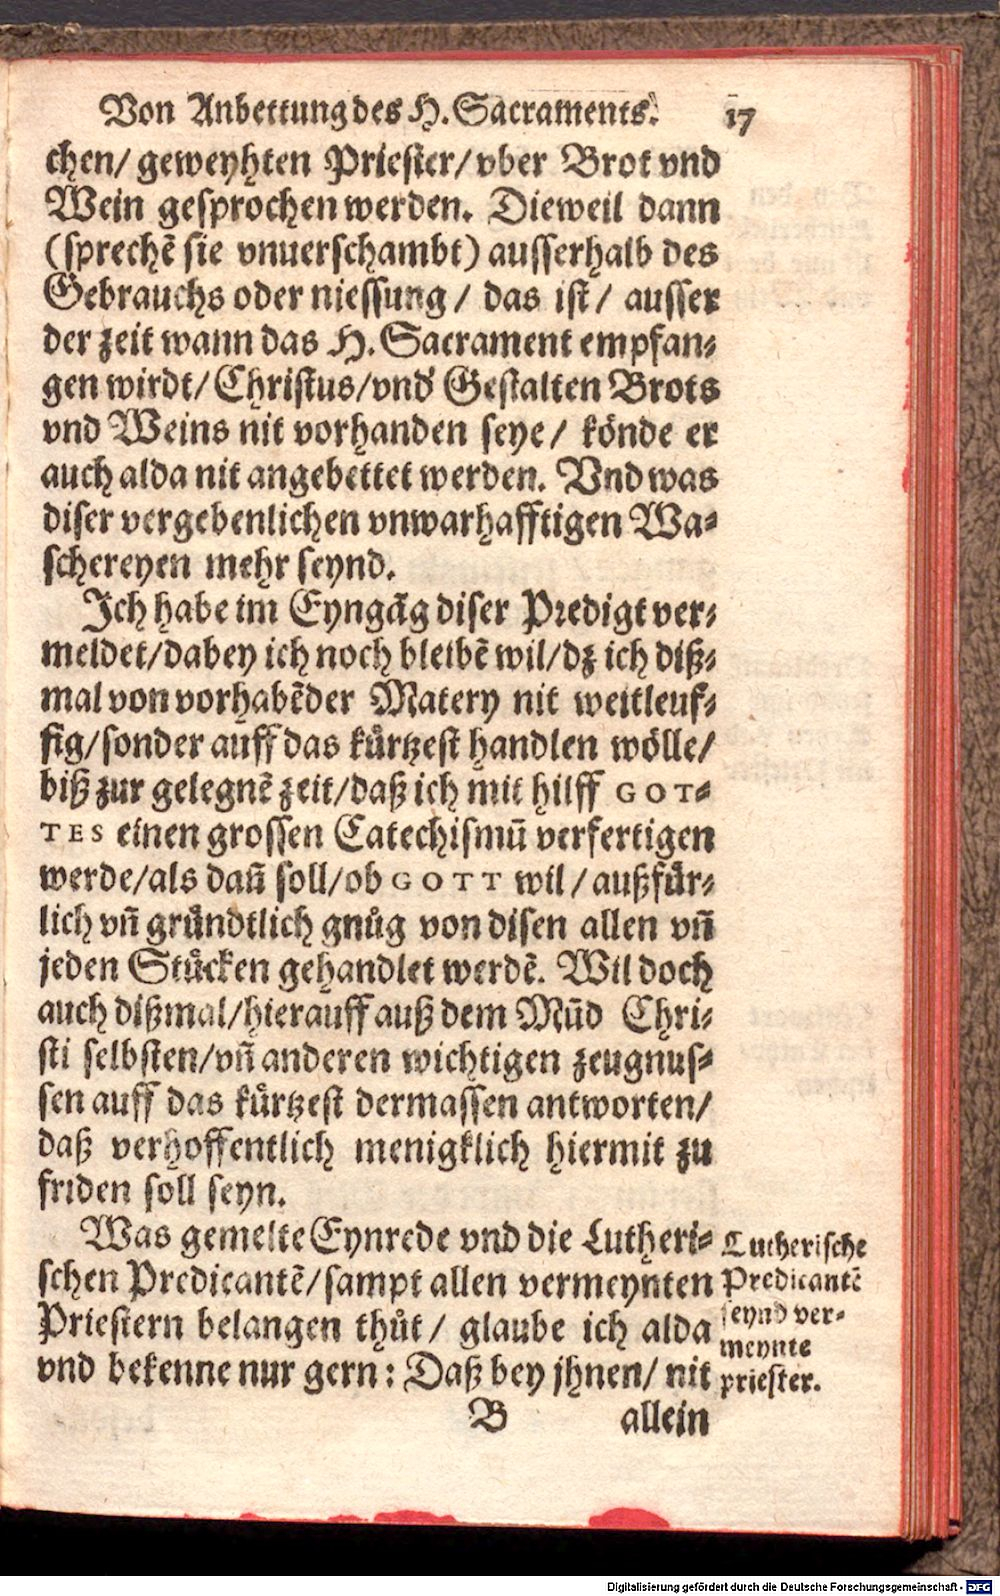 Von Anbettung des H. Sacraments. 17
chen/ geweyhten Priester/ vber Brot vnd
Wein gesprochen werden. Dieweil dann
(sprechẽ sie vnuerschambt) ausserhalb des
Gebrauchs oder niessung/ das ist/ ausser
der zeit wann das H. Sacrament empfan-
gen wirdt/ Christus/ vnd' Gestalten Brots
vnd Weins nit vorhanden seye/ könde er
auch alda nit angebettet werden. Vnd was
diser vergebenlichen vnwarhafftigen Wa-
schereyen mehr seynd.
Ich habe im Eyngãg diser Predigt ver-
meldet/ dabey ich noch bleibẽ wil/ dz ich diß-
mal von vorhabẽder Matery nit weitleuf-
fig/ sonder auff das kürtzest handlen wölle/
biß zur gelegnẽ zeit/ daß ich mit hilff GOT-
TES einen grossen Catechismũ verfertigen
werde/ als dañ soll/ ob GOTT wil/ außfür-
lich vñ gründtlich gnůg von disen allen vñ
jeden Stücken gehandlet werdẽ. Wil doch
auch dißmal/ hierauff auß dem Mũd Chri-
sti selbsten/ vñ anderen wichtigen zeugnus-
sen auff das kürtzest dermassen antworten/
daß verhoffentlich menigklich hiermit zu
friden soll seyn.
Was gemelte Eynrede vnd die Lutheri-
schen Predicantẽ/ sampt allen vermeynten
Priestern belangen thůt/ glaube ich alda
vnd bekenne nur gern: Daß bey jhnen/ nit
Lutherische
Predicantẽ
seynd ver-
meynte
priester.
B allein
Digitalisierung gefördert durch die Deutsche Forschungsgemeinschaft - DFG